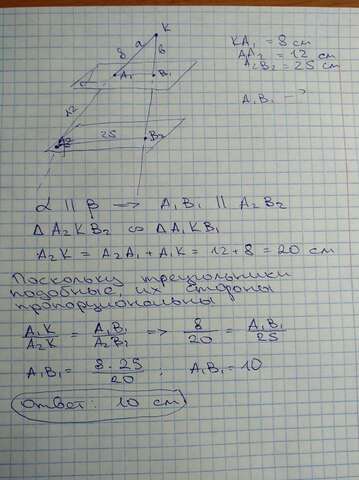 K
8 a b
A₁ B₁
12
25
A₂ B₂
KA₁ = 8 см
AA₂ = 12 см
A₂B₂ = 25 см
A₁B₁ — ?
α || β —> A₁B₁ || A₂B₂
Δ A₂KB₂ ∞ ΔA₁KB₁
A₂K = A₂A₁ + A₁K = 12+8 = 20 см
Поскольку треугольники
подобные, их стороны
пропорциональны
A₁K/A₂K = A₁B₁/A₂B₂ => 8/20 = A₁B₁/25
A₁B₁ = 8·25/20 ; A₁B₁ = 10
Ответ: 10 см